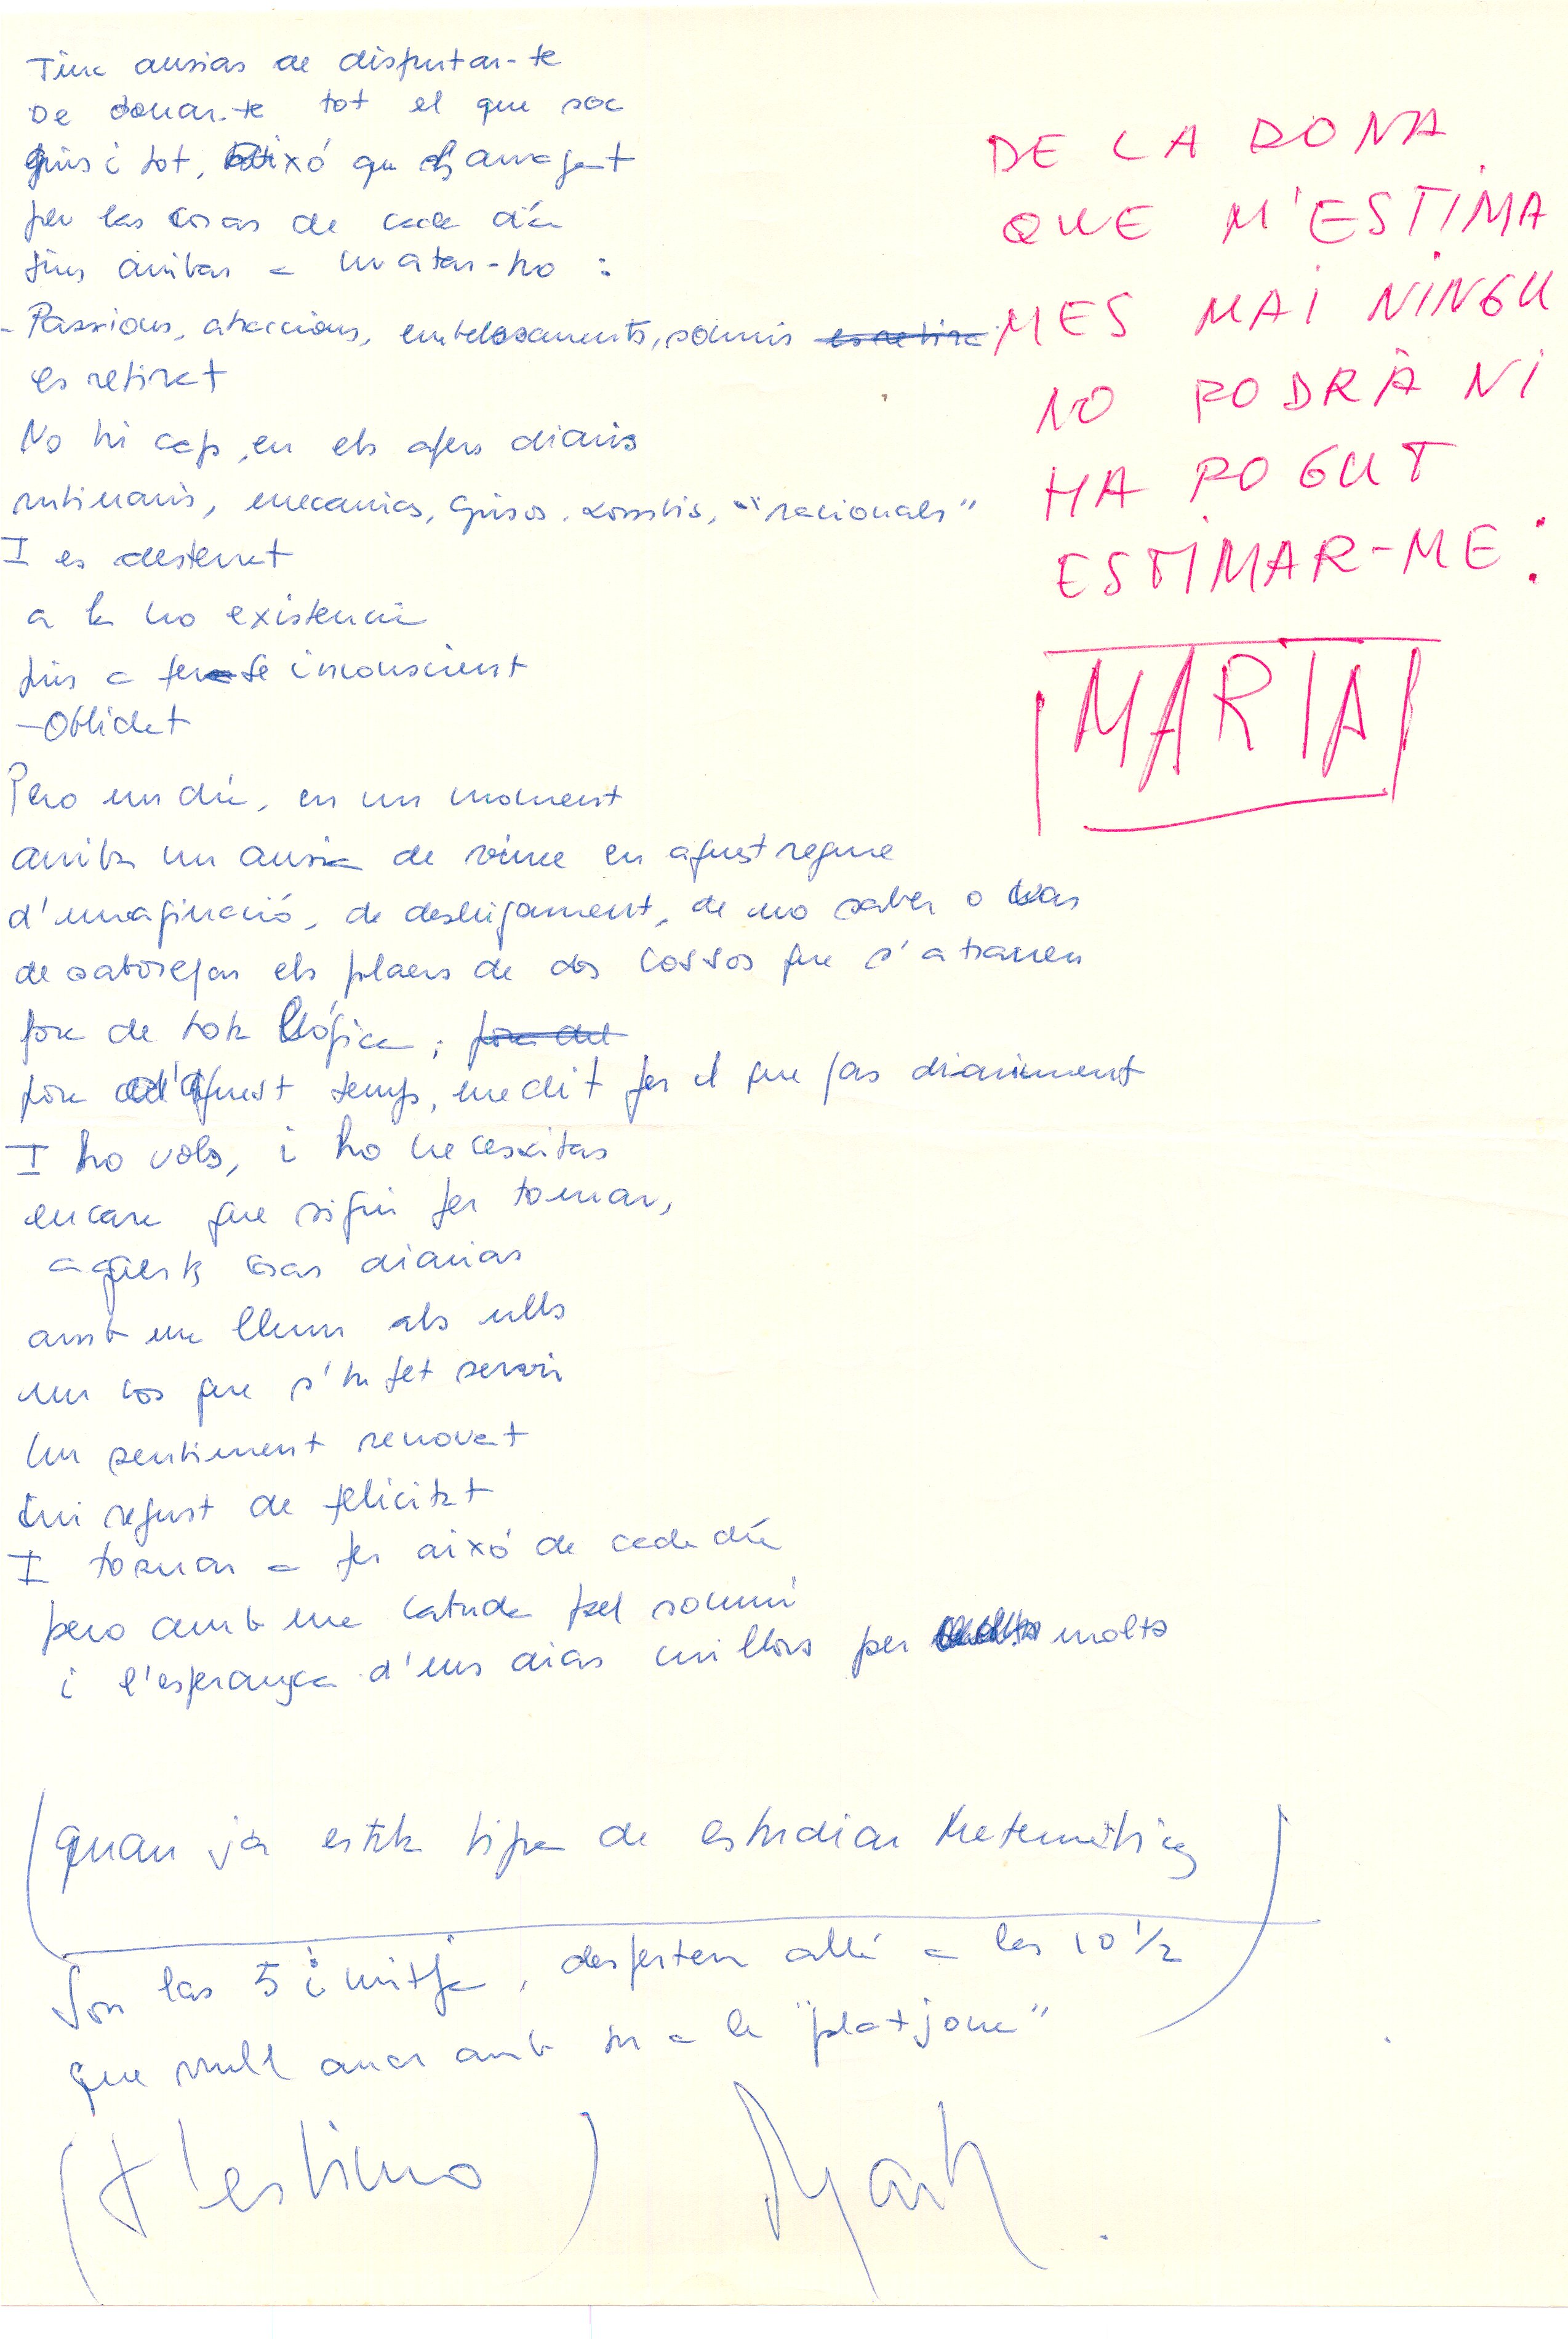 Tinc ansias de disfrutar-te
De donar-te tot el que soc
fins i tot, aixó que es amagat
per las cosas de cada día
fins arribar a matar-ho :
- Passions, atraccions, embelesaments, somnis es retira
es retirat
No hi cap, en els afers diaris
rutinaris, mecanics, grisos, "racionals"
I es desterrat
a la no existencia
fins a fer-se inconscient
- Oblidat
Pero un día, en un moment
arriba un ansia de viure en aquest regne
d'imaginació, de deslligament, de no saber o
de saborejar els plaers de dos cossos que s'atrauen
fora de tota llógica ; fora del
fora d'aquest temps, medit per el que fas diariment
I ho vols, i ho necessitas
encara que sigui per tornar,
a aquests cosas diarias
amb una llum als ulls
un cos que s'ha fet servir
Un sentiment renovat
Un regust de felicitat
I tornar a fer aixó de cada día
pero amb una batuda pel somni
i l'esperança d'uns dias millors per molts
(quan ja estaba tipa de estudiar Matemàtics
Son las 5 i mitja, desperten allá a les 10 1/2
que vull anar amb tu a la "platjona" )
(t'estimo) Marta.
DE LA DONA
QUE M'ESTIMA
MES MAI NINGU
NO PODRÀ NI
HA POGUT
ESTIMAR-ME :
MARTA